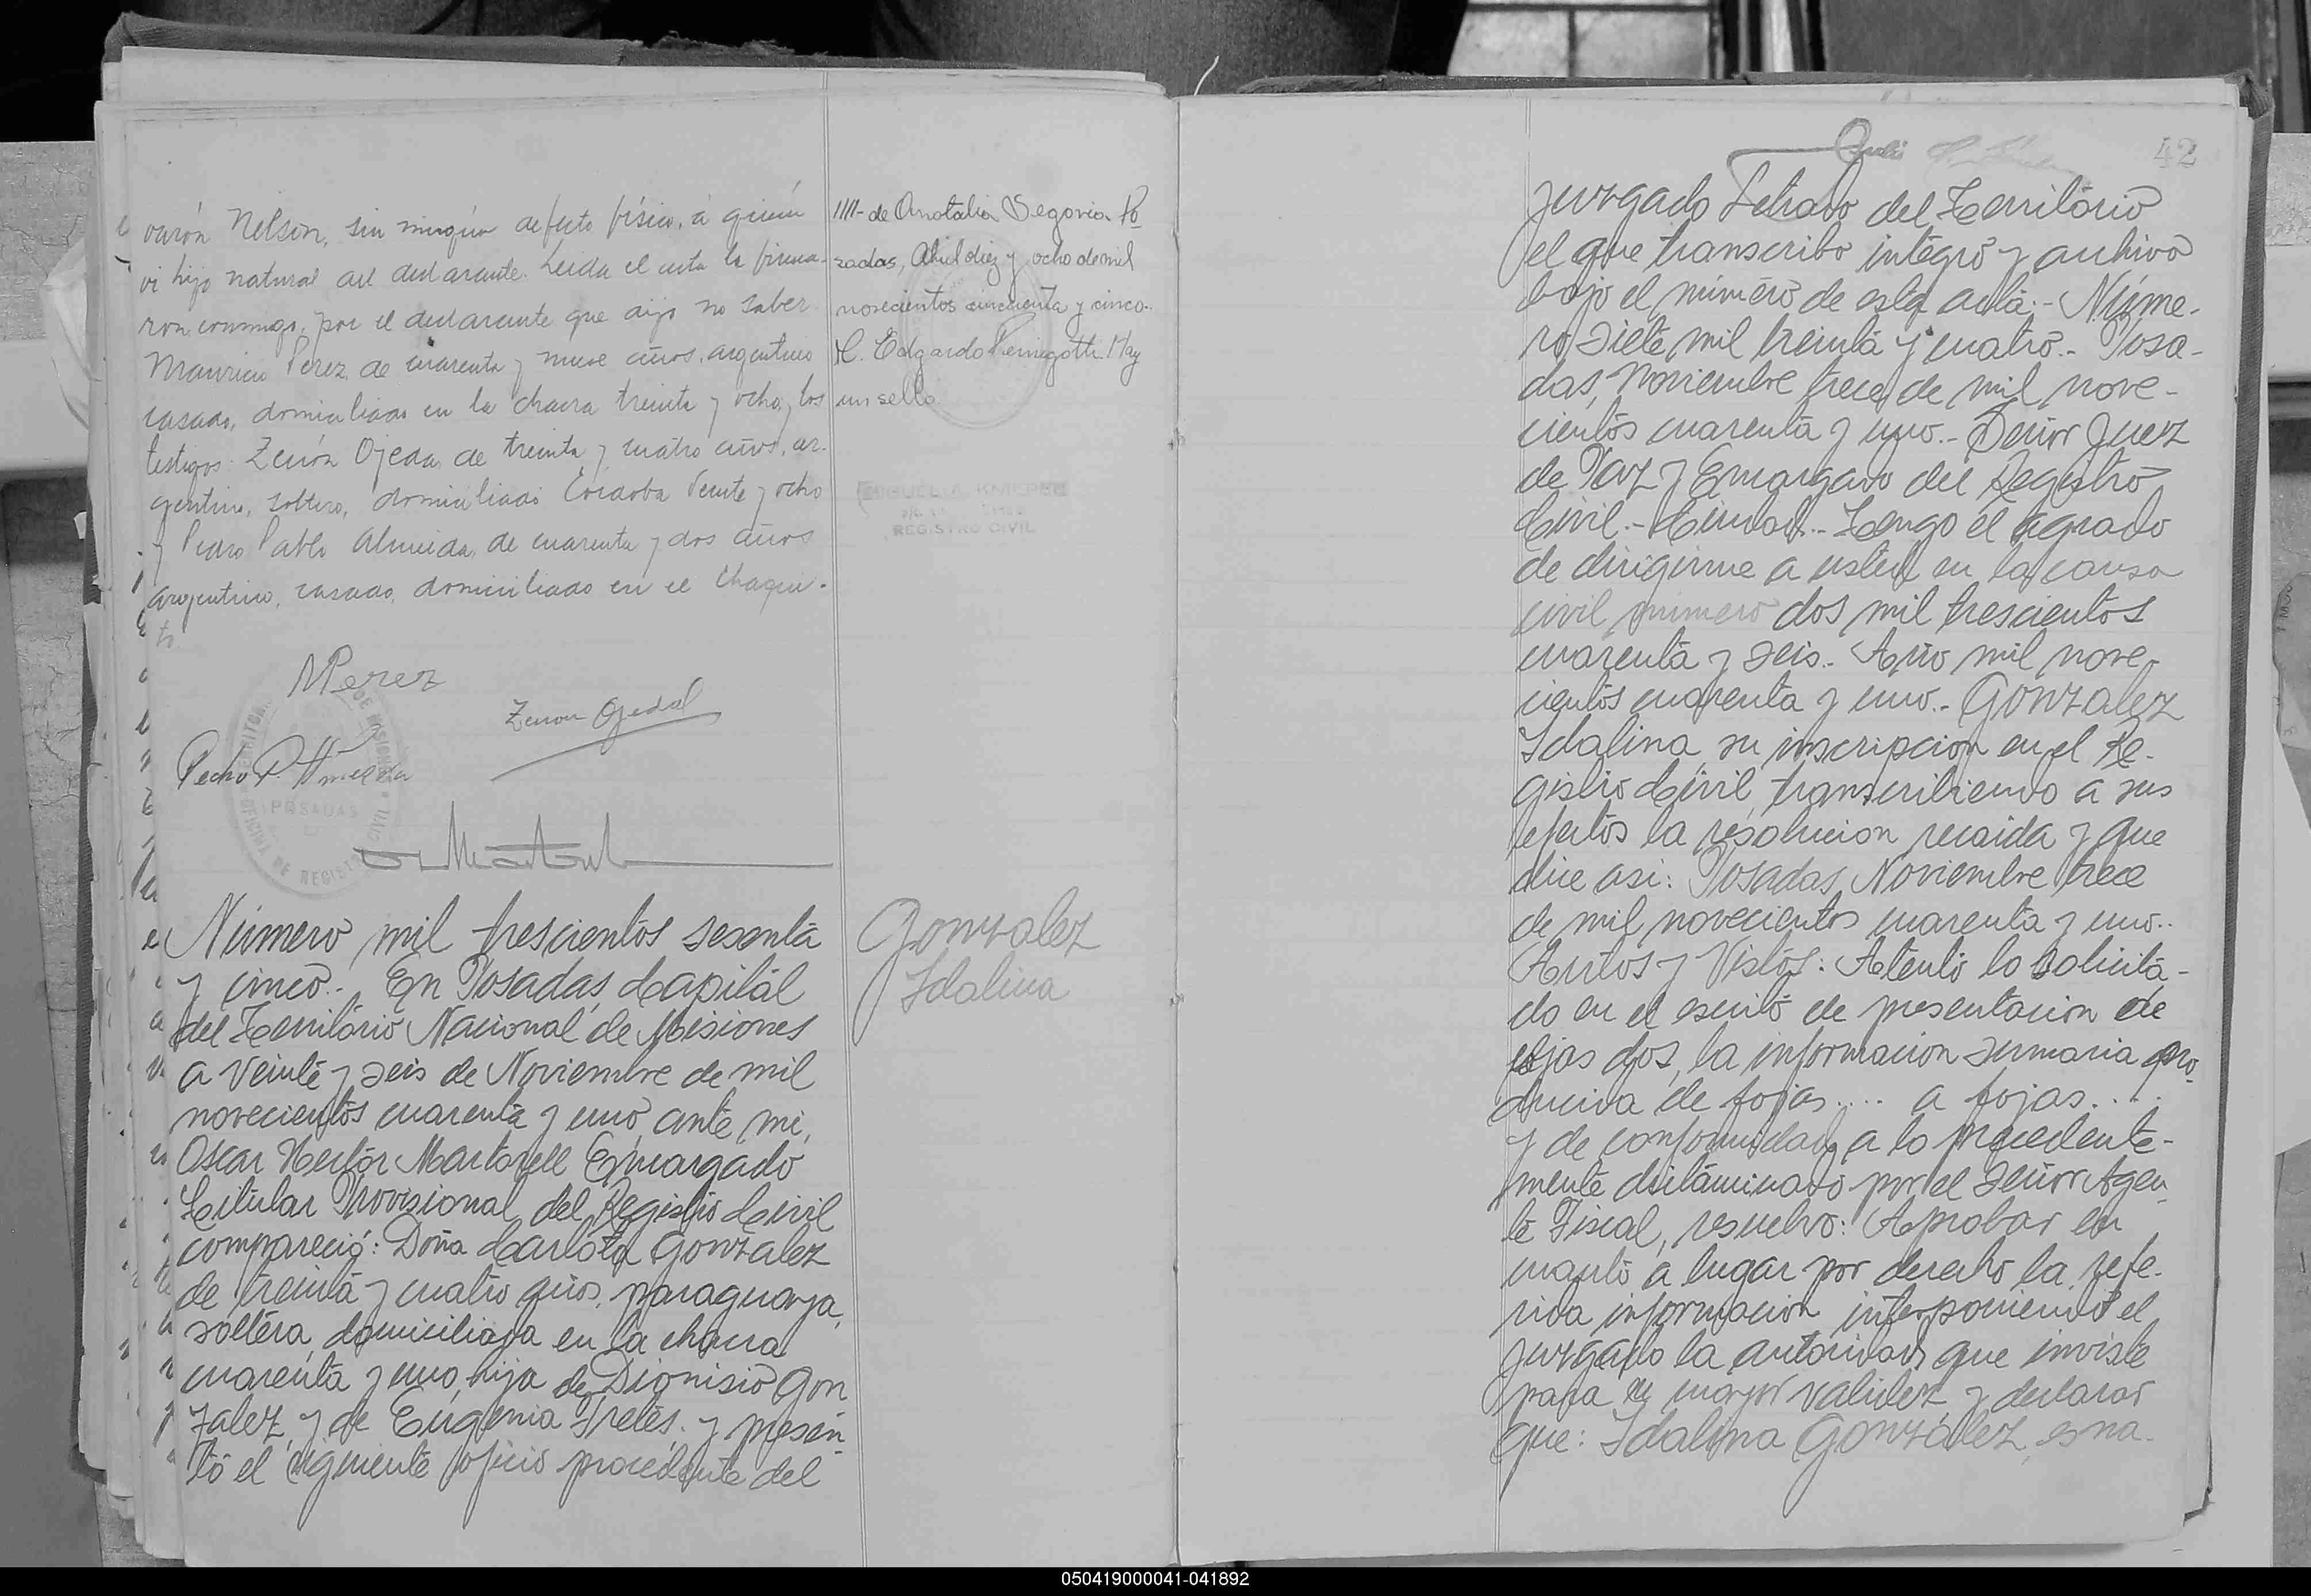 varón Nelson, sin ningún defecto físico, á quien
vi hijo natural del declarante. Leida el acta la firma-
ron conmigo, por el declarante que dijo no saber
Mauricio Perez, de cuarenta y nueve años, argentino
casado, domiciliado en la chacra treinta y ocho, y los
testigos: Zenón Ojeda, de treinta y cuatro años, ar-
gentino, soltero, domiciliado Córdoba veinte y ocho
y Pedro Pablo Almeida, de cuarenta y dos años
argentino, casado, domiciliado en el Chaqui-
to.
MPerez
Zenon Ojeda
Pedro P. Almeida
POSADAS
OFICINA DE REGISTRO CIVIL
Número mil trescientos sesenta
y cinco.- En Posadas, Capital
del Territorio Nacional de Misiones
a veinte y seis de Noviembre de mil
novecientos cuarenta y uno, ante mi,
Oscar Hector Martorell Encargado
Titular Provisional del Registro Civil
compareció: Doña Carlota Gonzalez
de treinta y cuatro años, paraguaya,
soltera, domiciliada en la chacra
cuarenta y uno, hija de Dionisio Gon
zalez, y de Eugenia Treles, y presen-
tó el siguiente oficio procedente del
1111- de Anatalia Segovia. Po
sadas, Abril diez y ocho de mil
novecientos cincuenta y cinco.-
H. Edgardo Pernigotti. Hay
un sello.
MIGUEL A. KNIEPER
REGISTRO CIVIL
Gonzalez
Idalina
42
Juzgado Letrado del Territorio
el que transcribo integro y archivo
bajo el número de esta acta:- Núme-
ro siete mil treinta y cuatro.- Posa-
das, Noviembre trece de mil nove-
cientos cuarenta y uno.- Señor Juez
de Paz y Encargado del Registro
Civil.- Ciudad.- Tengo el agrado
de dirigirme a usted en la causa
civil número dos mil trescientos
cuarenta y seis.- Año mil nove-
cientos cuarenta y uno.- Gonzalez
Idalina su inscripcion en el Re-
gistro Civil, transcribiendo a sus
efectos la resolucion recaida y que
dice asi: Posadas, Noviembre trece
de mil novecientos cuarenta y uno..
Autos y Vistos: Atento lo solicita-
do en el escrito de presentacion de
fojas dos, la informacion sumaria pro-
ducida de fojas.... a fojas....
y de conformidad a lo precedente-
mente dictaminado por el señor Agen
te Fiscal, resuelvo: Aprobar en
cuanto a lugar por derecho la refe-
rida informacion interponiendo el
Juzgado la autoridad que inviste
para su mayor validez y declarar
que: Idalina González, es na-
050419000041-041892